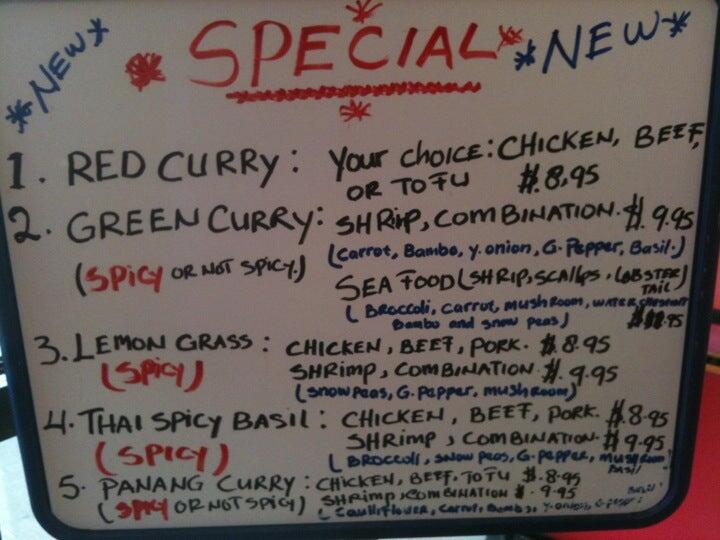 *NEW* SPECIAL *NEW*
1. RED CURRY: Your CHOICE: CHICKEN, BEEF,
OR TOFU $.8.95
2. GREEN CURRY: SHRIP, COMBINATION. $.9.95
(Carrot, Bambo, y. onion, G. Pepper, Basil.)
(SPICY OR NOT SPICY.)
SEA FOOD (SHRIP, SCALLPS, LOBSTER
TAIL)
(Broccoli, Carrot, mushroom, water chesnort
Bambo and snow peas)
3. LEMON GRASS: CHICKEN, BEEF, PORK. $.8.95
(SPICY) SHRIMP, COMBINATION. $.9.95
(snow peas, G. Pepper, mushroom)
4. THAI SPICY BASIL: CHICKEN, BEEF, PORK. $.8.95
(SPICY) SHRIMP, COMBINATION. $.9.95
(BROCCOLI, snow peas, G. Pepper, mushroom
BASIL
5. PANANG CURRY: CHICKEN, BEEF, TOFU $.8.95
(SPICY OR NOT SPICY) SHRIMP, COMBINATION $.9.95
(Cauliflover, Carrot, Bambo, y. onion, G. Peper,